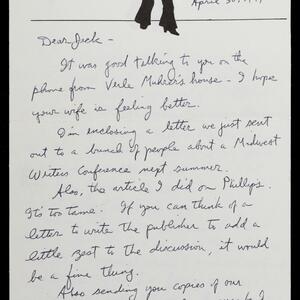 April 30, 19
Dear Jack -
It was good talking to you on the
phone from Verle Muhrer's house - I hope
your wife is feeling better.
I'm enclosing a letter we just sent
out to a bunch of people about a Midwest
Writers Conference next summer.
Also, the article I did on Phillips.
It's too tame. If you can think of a
letter to write the publisher to add a
little zest to the discussion, it would
be a fine thing.
Also sending you copies of our